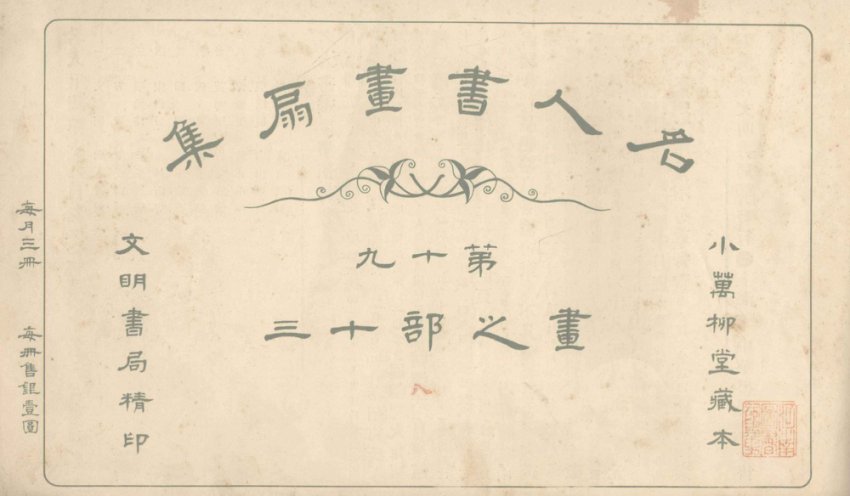 名人書畫扇集
第十九
畫之部十三
八
小萬柳堂藏本
文明書局精印
每月三冊 每冊售銀壹圓